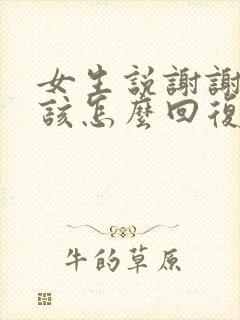 女生説謝謝
該怎麼回復
牛的草原